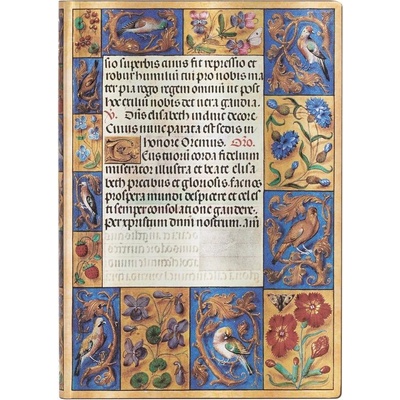 sio superbis auius fit repressio et
robur humiliū tui pro nobis ma
ter pia regio regem omniū ut post
hoc exiliū nobis det vera gaudia.
V. Diūs elisabeth indue decore
Cuius nunc parata est sedis in
honore Oremus. Orō.
Tuorum corda fidelium
miserator illustra et beate elisa
beth precibus et gloriosis fac nos
prospera mundi despicere et celes
ti semper consolatione gaudere.
Per xpistum dnm nostrum. am